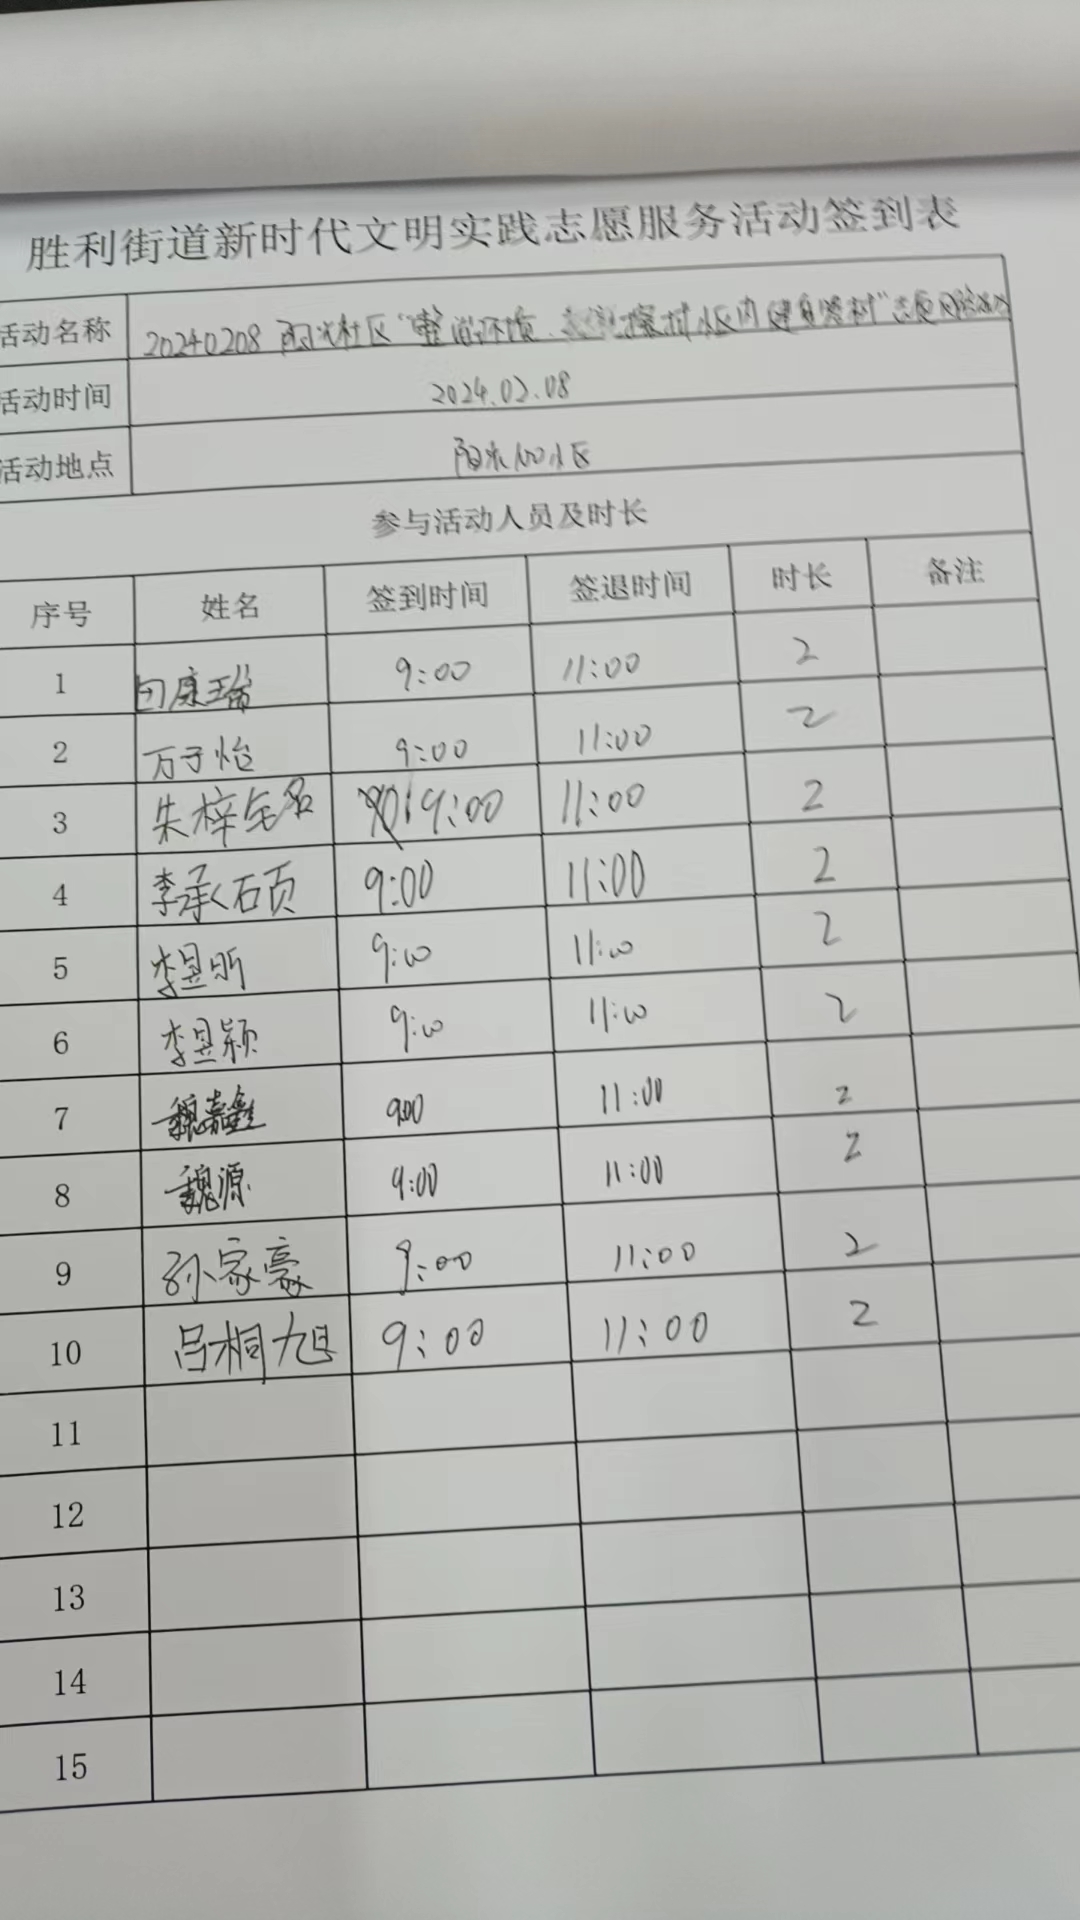 胜利街道新时代文明实践志愿服务活动签到表
活动名称 20240208 社区"整治环境、小区内健身器材"志愿服务活动
活动时间 2024.02.08
活动地点 阳光100小区
参与活动人员及时长
序号 姓名 签到时间 签退时间 时长 备注
1 田康瑞 9:00 11:00 2
2 万子怡 9:00 11:00 2
3 朱梓铭 9:00 11:00 2
4 李承硕 9:00 11:00 2
5 李昱昕 9:00 11:00 2
6 李昱颖 9:00 11:00 2
7 魏嘉鑫 9:00 11:00 2
8 魏源 9:00 11:00 2
9 孙家豪 9:00 11:00 2
10 吕桐旭 9:00 11:00 2
11
12
13
14
15